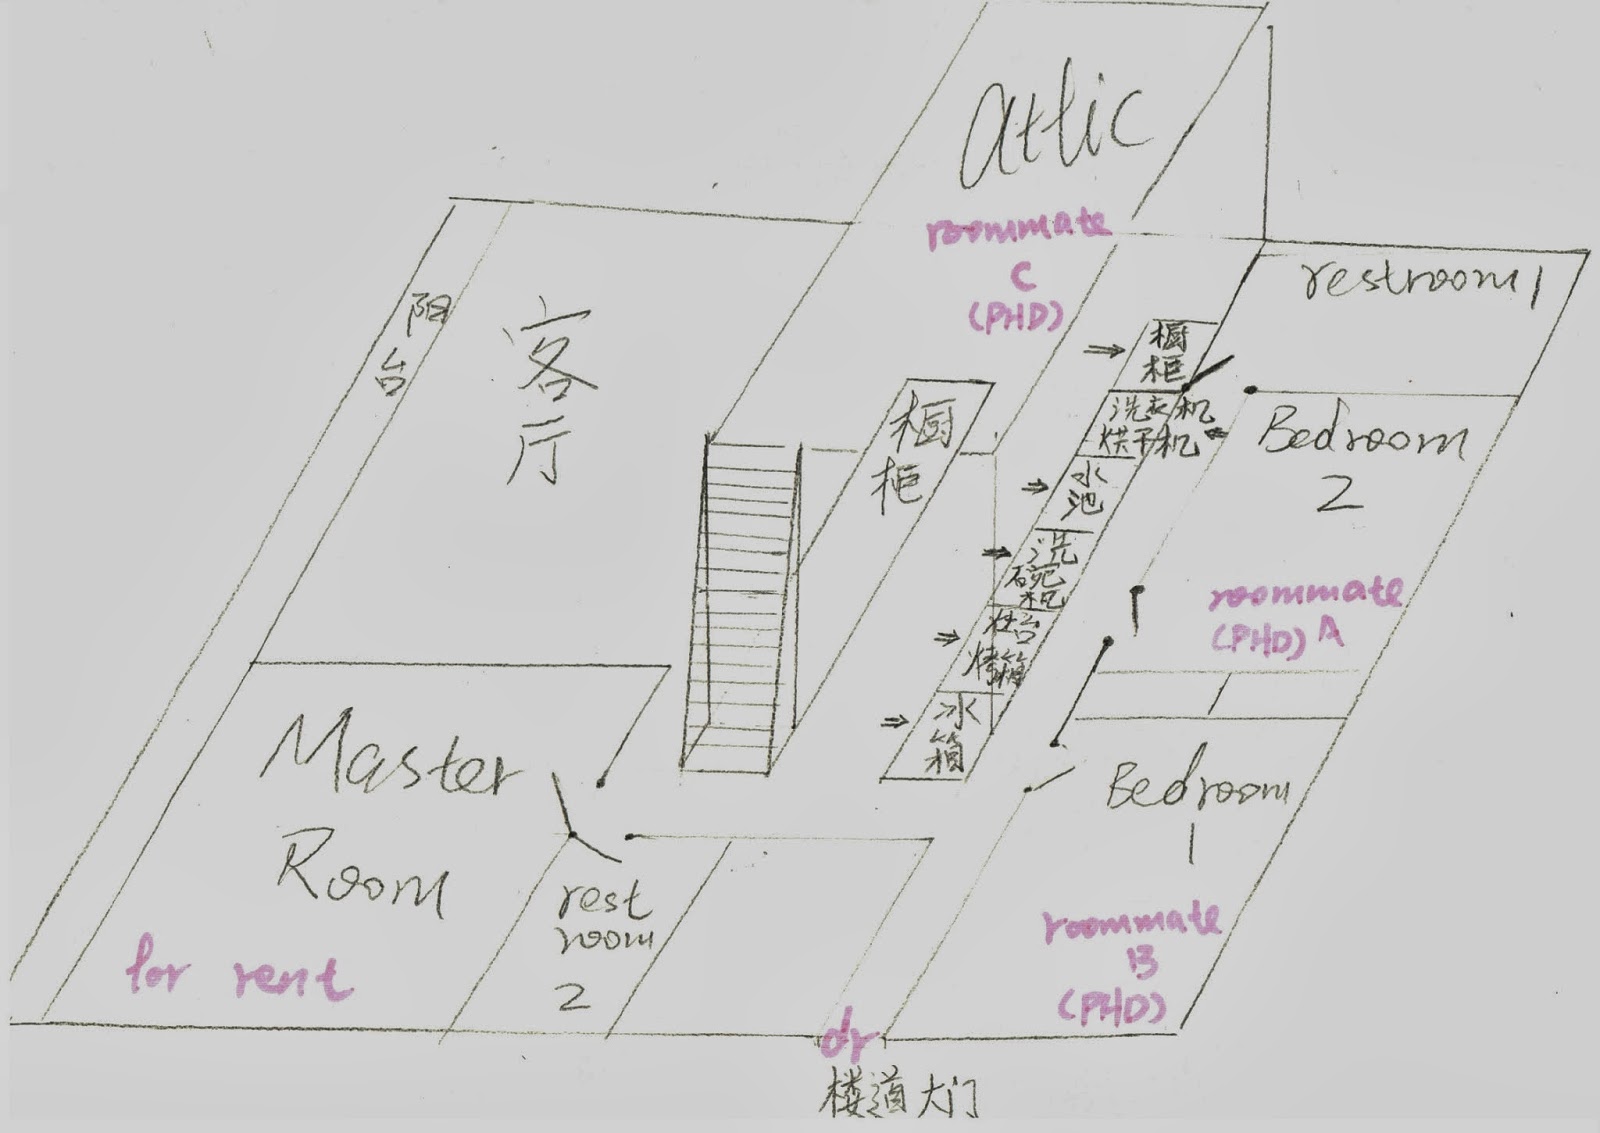 attic
roommate
C
(PHD)
restroom 1
阳
台
客
厅
橱
柜
橱
柜
洗衣机
烘干机
水
池
洗
碗
机
灶台
烤箱
冰
箱
Bedroom
2
roommate
(PHD) A
Master
Room
for rent
rest
room
2
Bedroom
1
roommate
B
(PHD)
dr
楼道大门